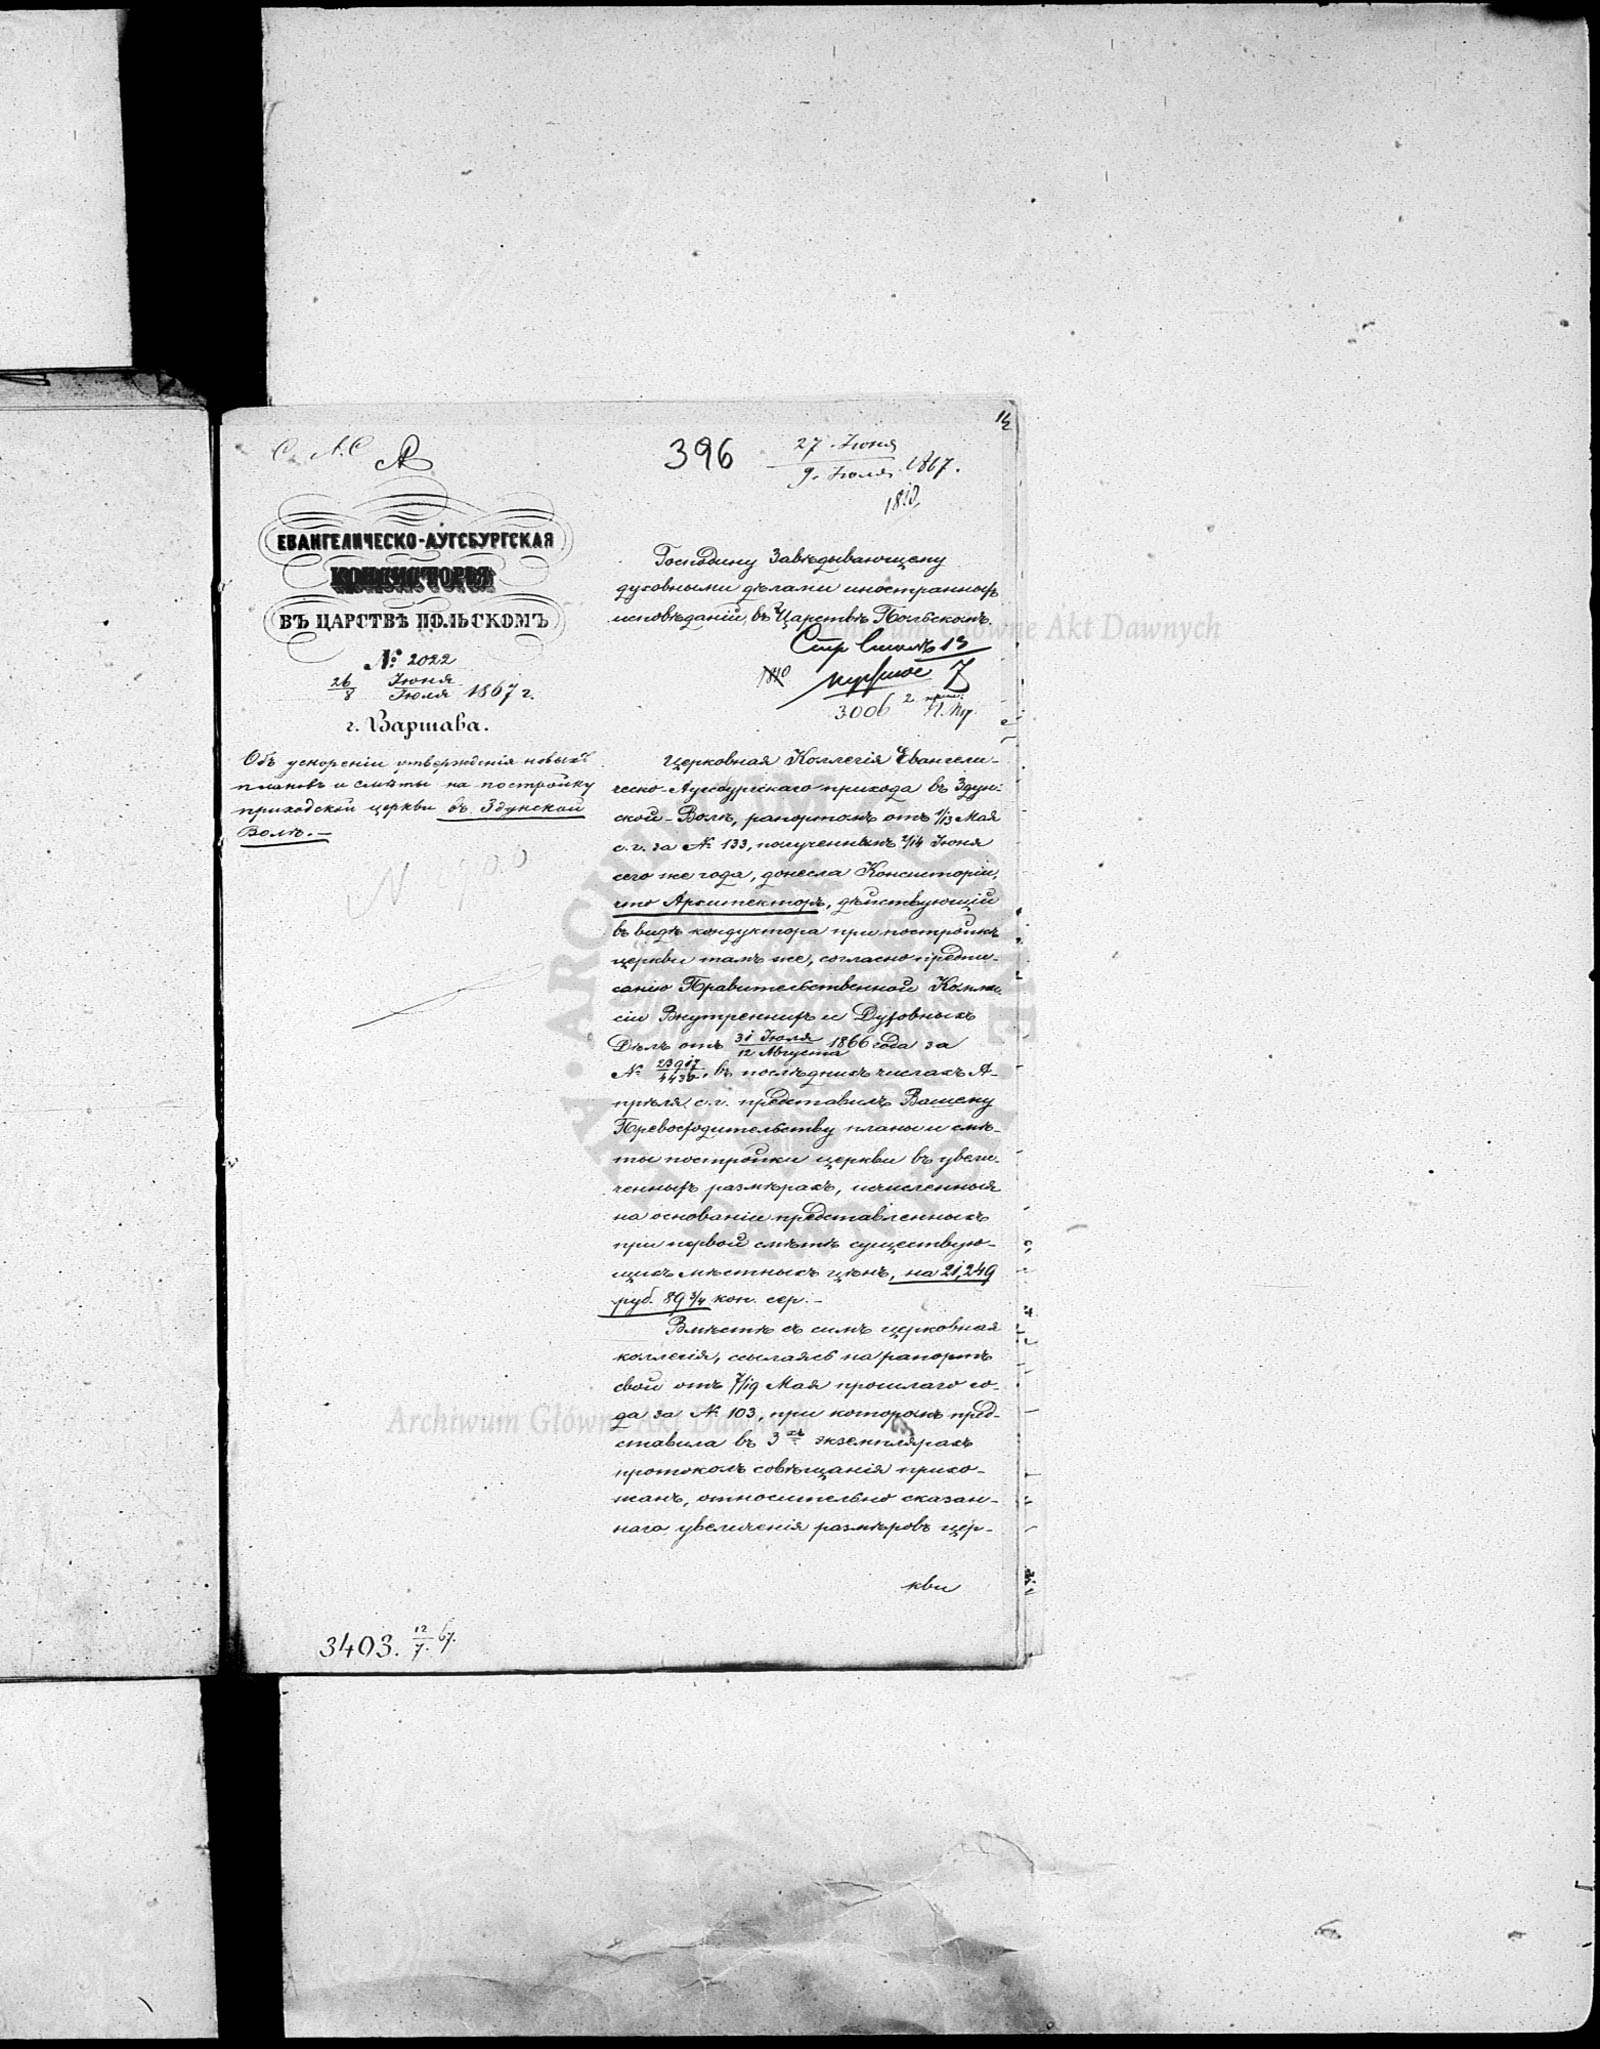 14
396
27 Июня
9 Июля 1867.
ЕВАНГЕЛИЧЕСКО-АУГСБУРГСКАЯ
КОНСИСТОРІЯ
ВЪ ЦАРСТВѢ ПОЛЬСКОМЪ
№ 2022
26 Июня
8 Іюля 1867 г.
г. Варшава.
Объ ускореніи утвержденія новыхъ
плановъ и смѣты на постройку
приходской церкви въ Здунской
Волѣ.—
Господину Завѣдывающему
духовными дѣлами иностранныхъ
исповѣданій въ Царствѣ Польскомъ.
3006
Церковная Коллегія Евангели-
ческо-Аугсбургскаго прихода въ Здун-
ской-Волѣ, рапортомъ отъ 1/13 Мая
с. г. за № 133, полученнымъ 2/14 Июня
сего же года, донесла Консисторіи,
что Архитекторъ, дѣйствующій
въ видѣ кондуктора при постройкѣ
церкви тамъ же, согласно предпи-
санію Правительственной Коммис-
сіи Внутреннихъ и Духовныхъ
Дѣлъ отъ 31 Іюля / 12 Августа 1866 года за
№ , въ послѣднихъ числахъ А-
прѣля с. г. представилъ Вашему
Превосходительству планы и смѣ-
ты постройки церкви въ увели-
ченныхъ размѣрахъ, исчисленныя
на основаніи представленныхъ
при первой смѣтѣ существую-
щихъ мѣстныхъ цѣнъ, на 21,249
руб. 89 3/4 коп. сер.—
Вмѣстѣ съ симъ церковная
коллегія, ссылаясь на рапортъ
свой отъ 7/19 Мая прошлаго го-
да за № 103, при которомъ пред-
ставила въ 3хъ экземплярахъ
протоколъ совѣщанія прихо-
жанъ, относительно сказан-
наго увеличенія размѣровъ цер-
кви
3403. 12/7. 67.
Archiwum Główne Akt Dawnych
Archiwum Główne Akt Dawnych